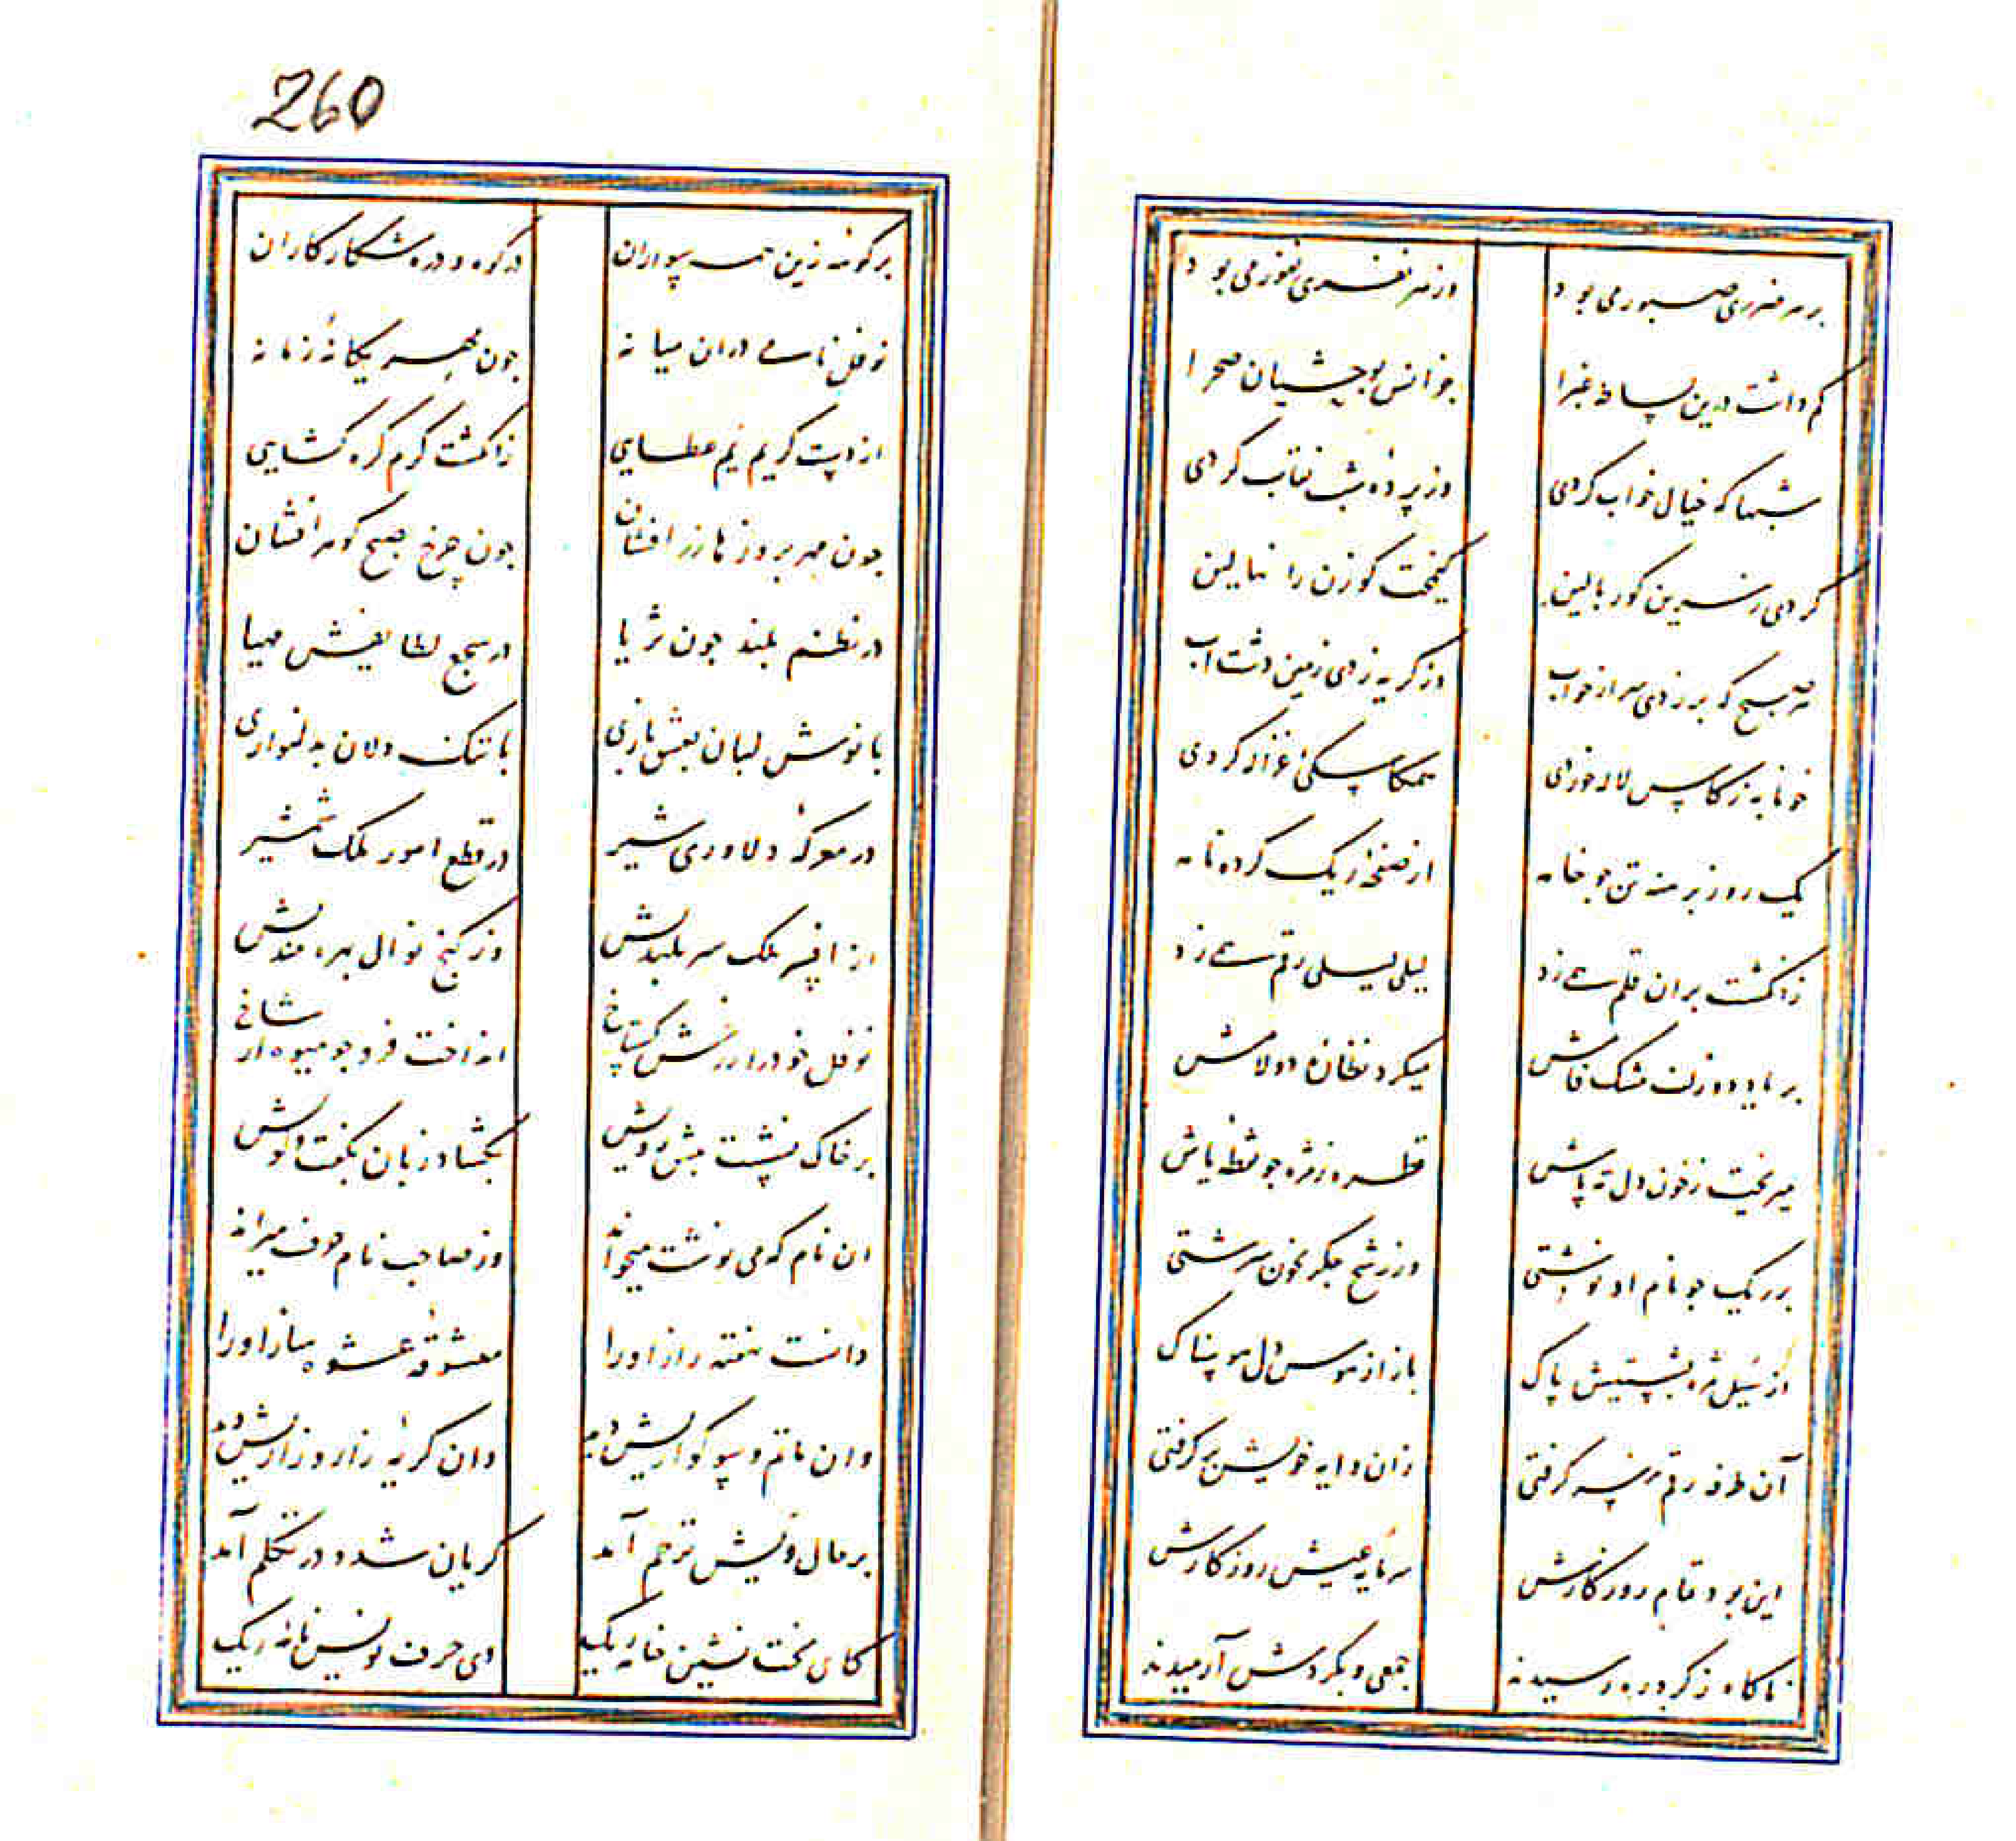 260
بر هر ضرری صبور می بود    وز هر نفری نفور می بود
کم داشت درین بساط غبرا    جز انس بوحشیان صحرا
شبها که خیال خواب کردی    وز پرده شب نقاب کردی
کردی ز سرین کور بالین    کیمخت کوزن را نهالین
هر صبح که بر زدی سر از خواب    وز کریه زدی زمین دشت آب
خونابه ز کاس لاله خوردی    همکاسکی غزاله کردی
یک روز برهنه تن جو خامه    از صفحه ریک کرده نامه
زانکشت بران قلم همی زد    لیلی لیلی رقم همی زد
بر یاد دو زلف مشک فامش    میکرد نظاره دو لامش
میریخت ز خون دل ته پاش    قطره ز مژه جو نقطه یاش
بر ریک جو نام او نوشتی    وز رشح جکر بخون سرشتی
از سیل مژه بشستیش پاک    باز از هوس دل هوسناک
آن طرفه رقم ز سر کرفتی    زان دایه خویش بر کرفتی
این بود تمام روز کارش    سرمایه عیش روزکارش
ناکاه ز کرد ره رسیدند    جمعی و بکردش آرمیدند
بر کوهه زین همه سواران    در کوه و دره شکار کاران
نوفل نامی دران میانه    جون مهر یکانه زمانه
از دست کریم یم عطایی    زانکشت کرم کره کشایی
جون مهر بروزها زر افشان    جون چرخ بصبح کوهر افشان
در نظم بلند جون ثریا    در سجع لطایفش مهیا
با نوش لبان بعشق بازی    با تنک دلان بدلنوازی
در معرکه دلاوری شیر    در قطع امور ملک شمشیر
از افسر ملک سر بلندیش    وز کنج نوال بهره مندیش
نوفل خود را ز رخش کستاخ    انداخت فرو جو میوه از شاخ
بر خاک نشست پیش رویش    بکشاد زبان بکفت و کویش
ان نام که می نوشت میخواند    وز صاحب نام حرف میراند
دانست نهفته راز او را    معشوقه عشوه ساز او را
وان ماتم و سوکواریش دید    وان کریه زار و زاریش دید
بر حال ویش ترحم آمد    کریان شد و در تکلم آمد
کای تخت نشین خانه ریک    وی حرف نویس نامه ریک